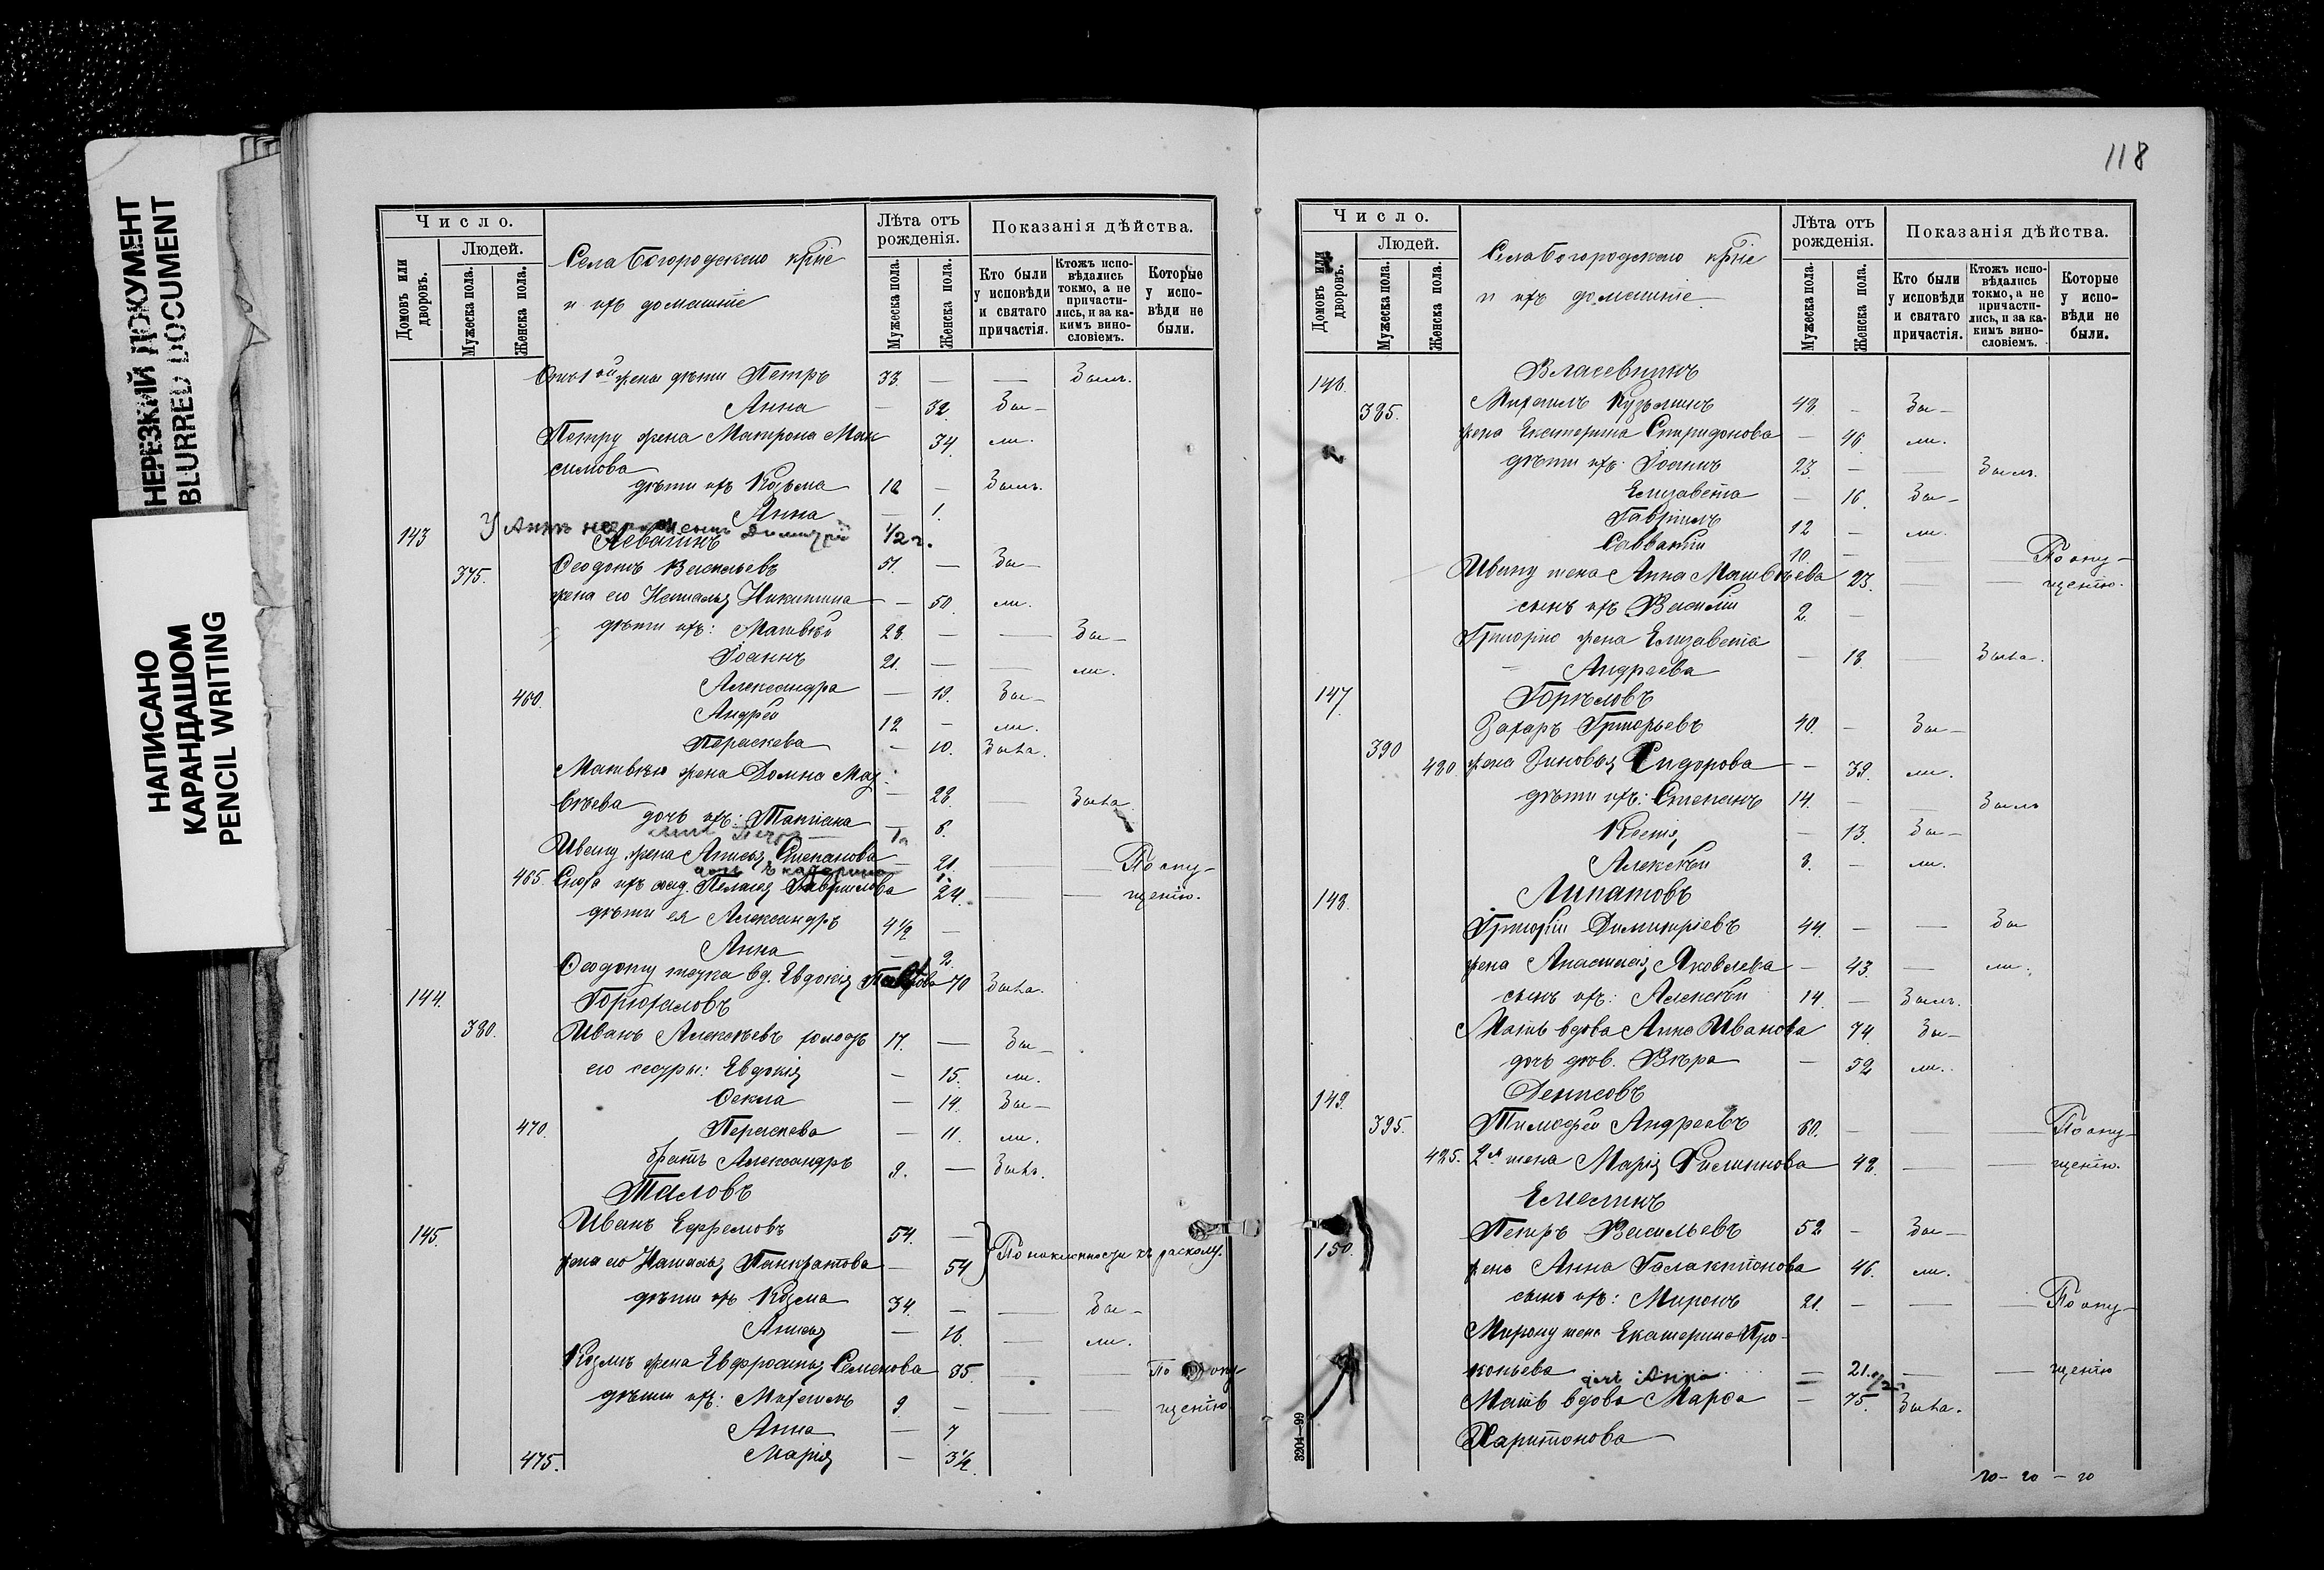 НЕРЕЗКИЙ ДОКУМЕНТ
BLURRED DOCUMENT
НАПИСАНО
КАРАНДАШОМ
PENCIL WRITING
Число.
Домовъ или дворовъ.
Людей.
Мужеска пола.
Женска пола.
Села Богородскаго крѣне
и ихъ домашніе
Лѣта отъ рожденія.
Мужеска пола.
Женска пола.
Показанія дѣйства.
Кто были у исповѣди и святаго причастія.
Ктожъ исповѣдались токмо, а не причастились, и за какимъ винословіемъ.
Которые у исповѣди не были.
Отъ 1ой жены дѣти Петръ 33. — — Былъ.
Анна — 32. Бы-
Петру жена Матрона Мак 34. ли.
симова
дѣти ихъ Козьма 12 — Былъ.
Анна — 1.
У Анны незаконный Димитрій 1/2 г.
143 Левагинъ
375. Ѳеодотъ Васильевъ 51. — Бы-
жена его Наталья Никитина — 50. ли.
дѣти ихъ: Матвѣй 28. — — Бы-
Іоаннъ 21. — — ли.
460. Александра — 19. Бы-
Андрей 12 — ли.
Параскева — 10. Была.
Матвѣю жена Домна Мат-
вѣева — 28. Была
дочь ихъ: Татіана — 8.
Ивану жена Анисья Степанова — 21. — — По опу-
дочь Екатерина 1
465. Сноха ихъ солд. Пелагея Гаврилова 24. — — щенію.
дѣти ея Александръ 4½ —
Анна — 2.
Ѳеодоту тетка вд. Евдокія 70 Была.
144. Горюхаловъ
380. Иванъ Алексѣевъ холостъ 17. — Бы-
его сестры: Евдокія — 15. ли.
Ѳекла — 14. Бы-
470. Параскева — 11. ли.
братъ Александръ 9. — Былъ.
Таловъ
145. Иванъ Ефремовъ 54. —
жена его Наталья Панкратова — 54 По наклонности къ расколу.
дѣти ихъ Козма 34. — — Бы-
Анисья — 16. — ли.
Козмѣ жена Евфросинья Семенова 35. — — По опу-
дѣти ихъ: Михаилъ 9. — — — щенію
Анна — 7
475. Марія — 3½.
118
Число.
Домовъ или дворовъ.
Людей.
Мужеска пола.
Женска пола.
Села Богородскаго крѣне
и ихъ домашніе
Лѣта отъ рожденія.
Мужеска пола.
Женска пола.
Показанія дѣйства.
Кто были у исповѣди и святаго причастія.
Ктожъ исповѣдались токмо, а не причастились, и за какимъ винословіемъ.
Которые у исповѣди не были.
146. Власевнинъ
385. Михаилъ Кузьминъ 48 — Бы-
жена Екатерина Спиридонова — 46. ли.
дѣти ихъ: Іоаннъ 23. — — Былъ.
Елизавета — 16. Бы-
Гавріилъ 12 — ли.
Савватій 10. — По опу-
Ивану жена Анна Матвѣева 23. — — щенію.
сынъ ихъ Василій 2. —
Григорію жена Елизавета
Андреева — 18. — Была.
147. Горѣловъ
Захаръ Григорьевъ 40. — Бы-
390 480. жена Зиновья Сидорова — 39. ли.
дѣти ихъ: Степанъ 14. — — Былъ
Ксенія — 13. Бы-
Алексѣй 8. — ли.
148. Липатовъ
Григорій Димитріевъ 44. — — Бы
жена Анастасія Яковлева — 43. — ли.
сынъ ихъ: Алексѣй 14. — Былъ.
Мать вдова Анна Иванова 74. Бы-
дочь дѣв. Вѣра — 52 ли.
149. Денисовъ
395. Тимофей Андреевъ 60. — — По опу-
485. 2я жена Марія Филиппова 48. — — щенію.
Емелинъ
150. Петръ Васильевъ 52 — Бы-
жена Анна Галактіонова 46. ли.
сынъ ихъ: Миронъ 21. — — — По опу-
Мирону жена Екатерина Про-
копьева — 21. — — щенію
дочь Анна — 1/2 г
Мать вдова Марѳа — 75. Была.
Харитонова
3204—99
20 - 20 - 20